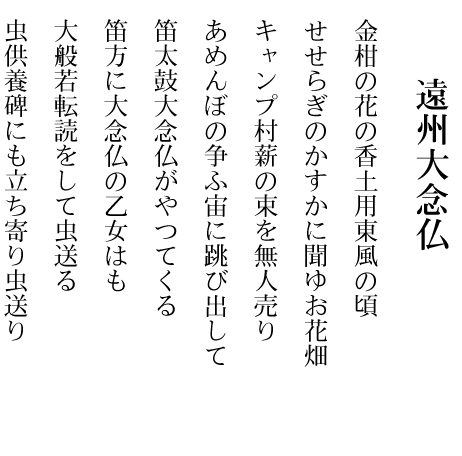 遠州大念仏
金柑の花の香土用東風の頃
せせらぎのかすかに聞ゆお花畑
キャンプ村薪の束を無人売り
あめんぼの争ふ宙に跳び出して
笛太鼓大念仏がやつてくる
笛方に大念仏の乙女はも
大般若転読をして虫送る
虫供養碑にも立ち寄り虫送り